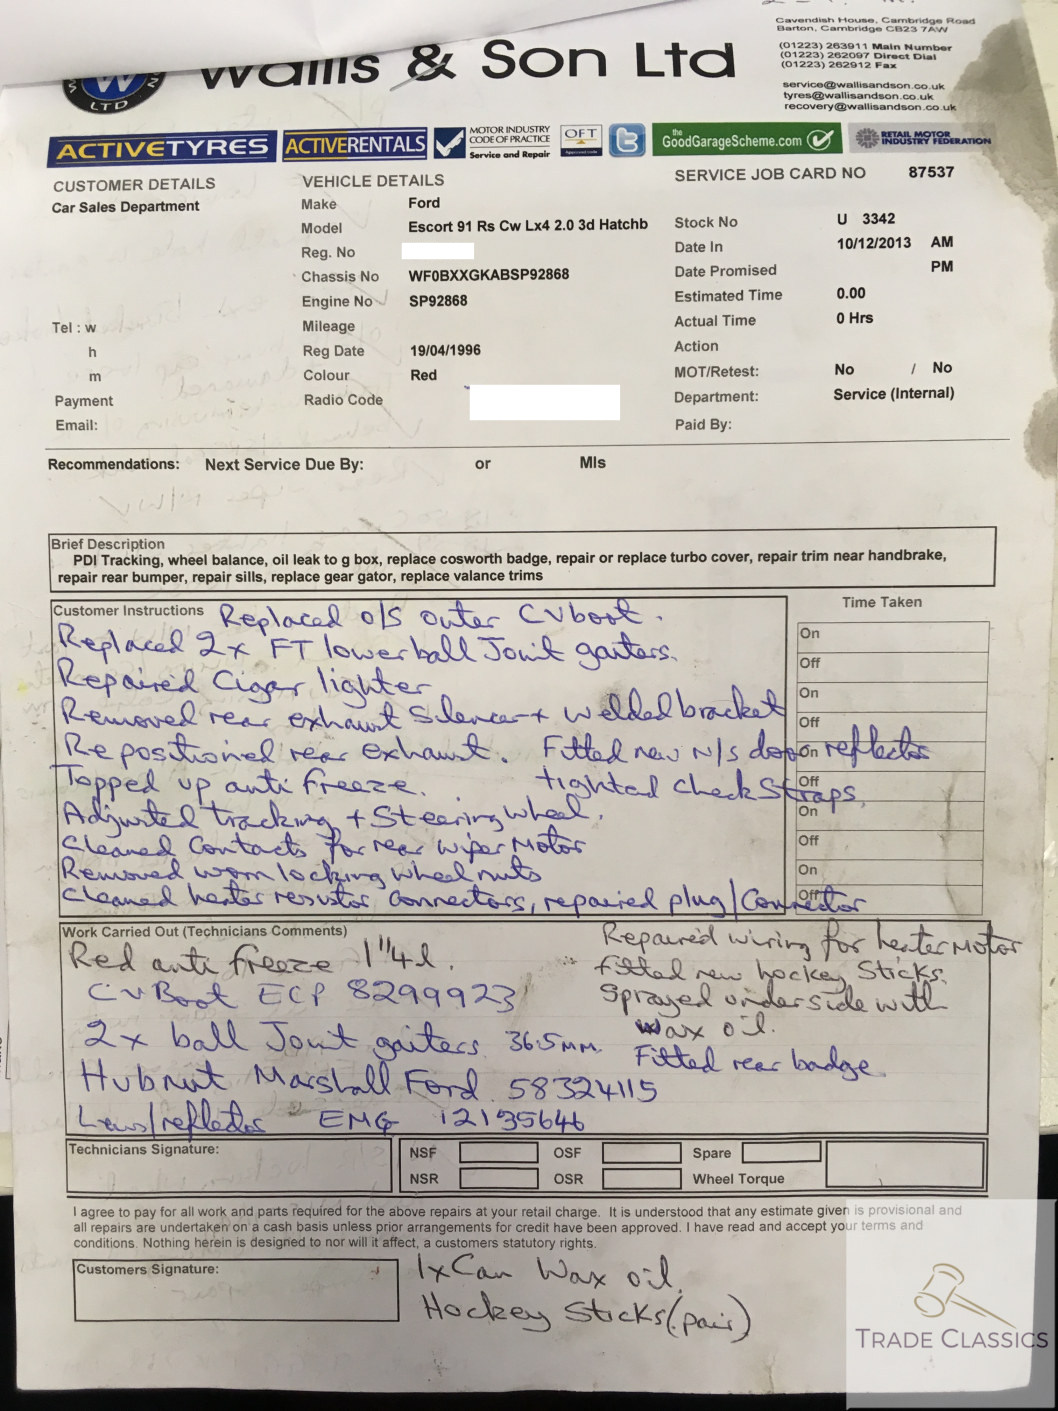 Wallis & Son Ltd
W
LTD
Cavendish House, Cambridge Road
Barton, Cambridge CB23 7AW
(01223) 263911 Main Number
(01223) 262097 Direct Dial
(01223) 262912 Fax
service@wallisandson.co.uk
tyres@wallisandson.co.uk
recovery@wallisandson.co.uk
ACTIVETYRES
ACTIVERENTALS
MOTOR INDUSTRY
CODE OF PRACTICE
Service and Repair
OFT
the
GoodGarageScheme.com
RETAIL MOTOR
INDUSTRY FEDERATION
CUSTOMER DETAILS
Car Sales Department
Tel : w
h
m
Payment
Email:
VEHICLE DETAILS
Make Ford
Model Escort 91 Rs Cw Lx4 2.0 3d Hatchb
Reg. No
Chassis No WF0BXXGKABSP92868
Engine No SP92868
Mileage
Reg Date 19/04/1996
Colour Red
Radio Code
SERVICE JOB CARD NO 87537
Stock No U 3342
Date In 10/12/2013 AM
Date Promised PM
Estimated Time 0.00
Actual Time 0 Hrs
Action
MOT/Retest: No / No
Department: Service (Internal)
Paid By:
Recommendations: Next Service Due By: or Mls
Brief Description
PDI Tracking, wheel balance, oil leak to g box, replace cosworth badge, repair or replace turbo cover, repair trim near handbrake,
repair rear bumper, repair sills, replace gear gator, replace valance trims
Customer Instructions Replaced o/s outer CV boot.
Replaced 2x FT lower ball Joint gaiters.
Repaired Cigar lighter
Removed rear exhaust Silencer + welded bracket
Repositioned rear exhaust. Fitted new N/s door reflector
Topped up anti freeze. tighted check Straps.
Adjusted tracking + Steering wheel.
Cleaned Contacts for rear wiper Motor
Removed worn locking wheel nuts
Cleaned heater resistor connectors, repaired plug/Connector
Time Taken
On
Off
On
Off
On
Off
On
Off
On
Off
Work Carried Out (Technicians Comments)
Red anti freeze 1"4l.
CV Boot ECP 8299923
2x ball Joint gaiters 36.5mm.
Hubnut Marshall Ford 58324115
Lens/reflector EMG 12135646
Repaired wiring for heater Motor
fitted new hockey Sticks.
Sprayed underside with
wax oil.
Fitted rear badge.
Technicians Signature:
NSF OSF Spare
NSR OSR Wheel Torque
I agree to pay for all work and parts required for the above repairs at your retail charge. It is understood that any estimate given is provisional and
all repairs are undertaken on a cash basis unless prior arrangements for credit have been approved. I have read and accept your terms and
conditions. Nothing herein is designed to nor will it affect, a customers statutory rights.
Customers Signature:
1x Can Wax oil.
Hockey Sticks (pair)
TRADE CLASSICS